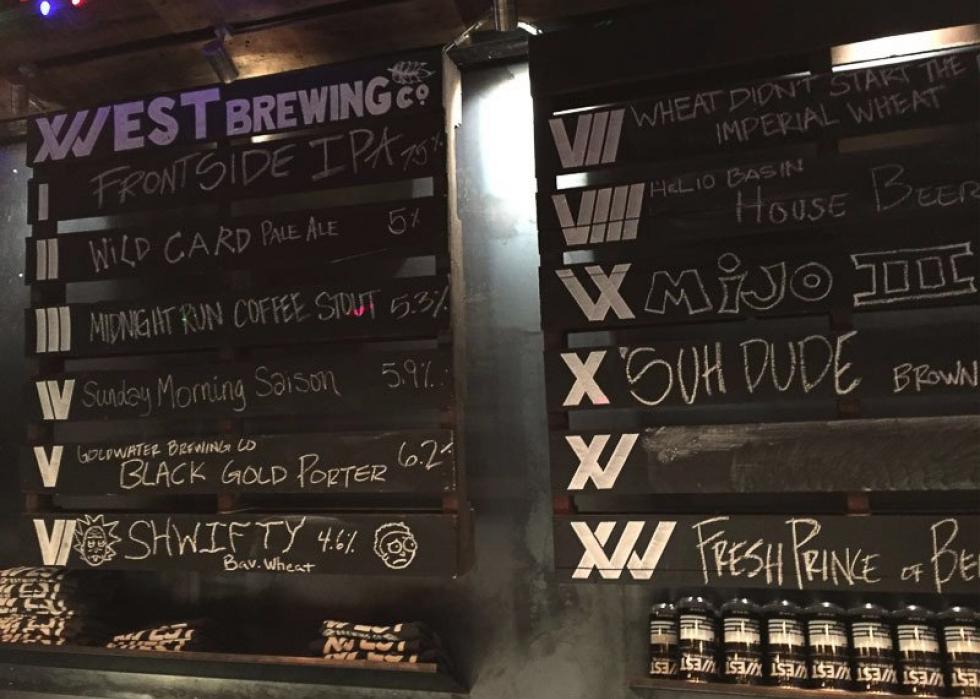 XWEST BREWING CO
I FRONTSIDE IPA 7.5%
II WILD CARD PALE ALE 5%
III MIDNIGHT RUN COFFEE STOUT 5.3%
IV Sunday Morning Saison 5.9%
V GOLDWATER BREWING CO
BLACK GOLD PORTER 6.2%
VI SHWIFTY 4.6%
Bav. Wheat
VII WHEAT DIDN'T START THE
IMPERIAL WHEAT
VIII HELIO BASIN
HOUSE BEER
IX MIJO III
X 'SUH DUDE BROWN
XI
XII FRESH PRINCE OF